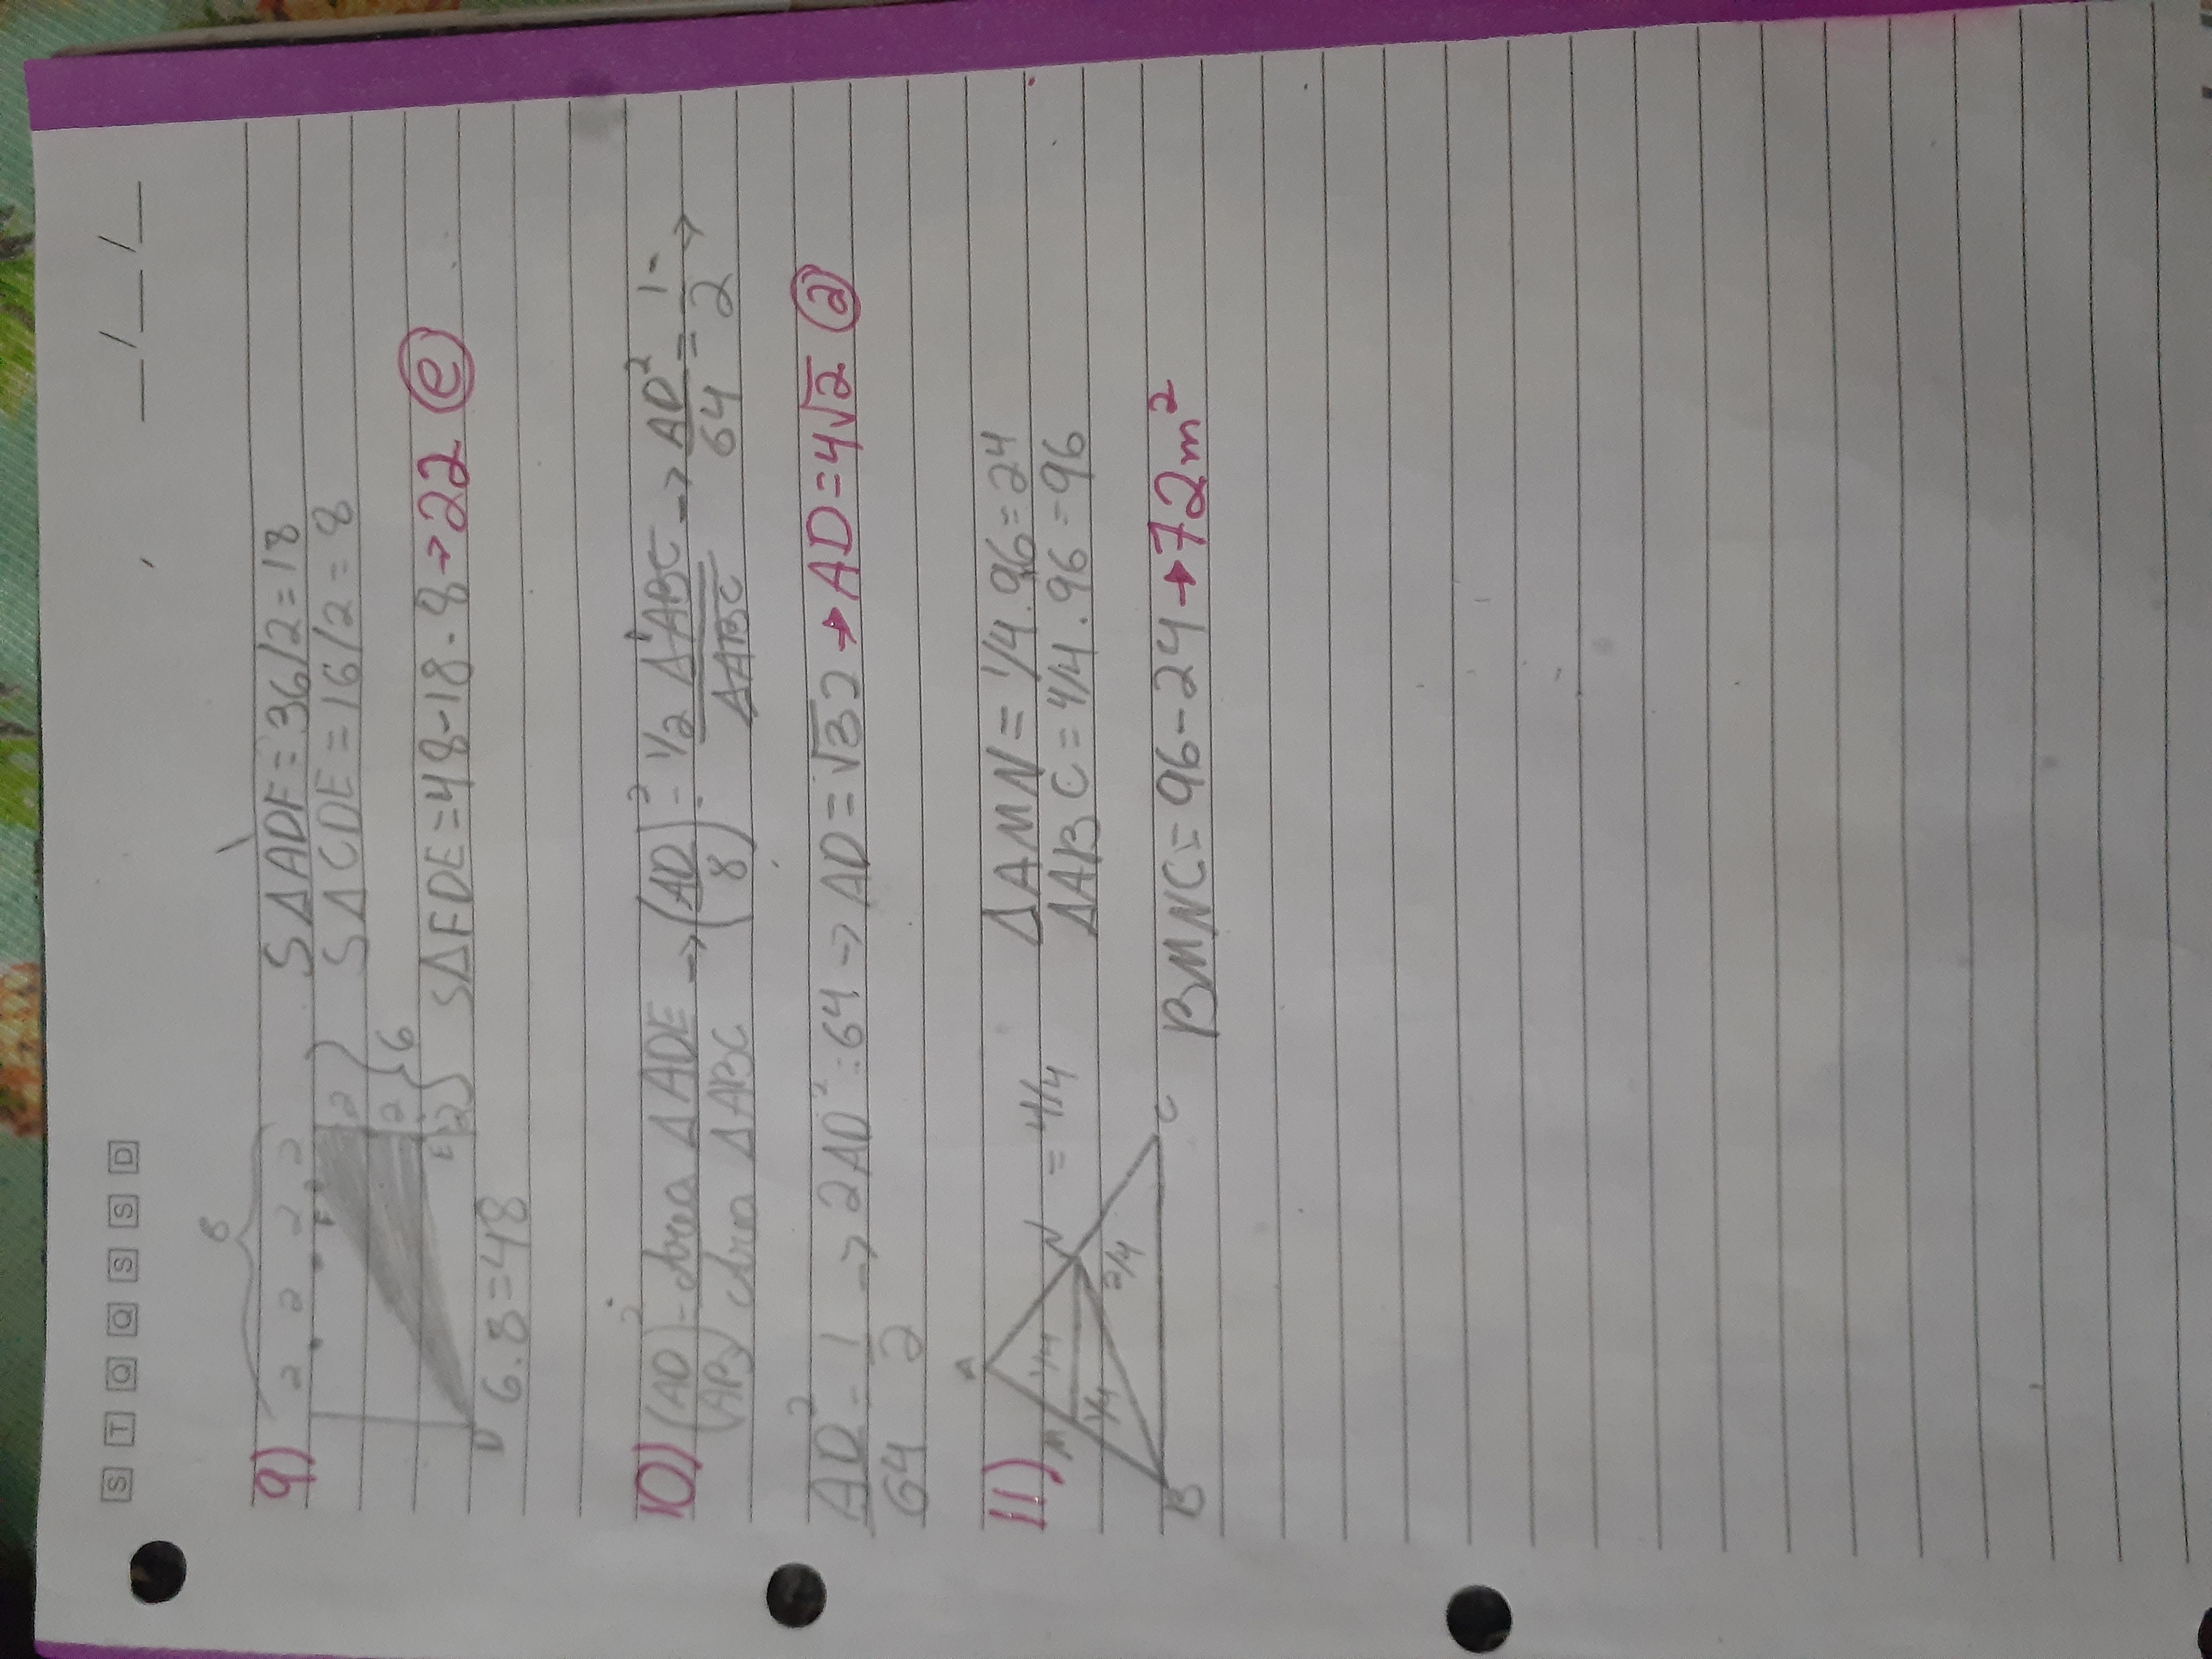 S T Q Q S S D
__/__/__
8
9) 2 2 2 2
F
2
2
2
6
E
D
6.8=48
S△ADF=36/2=18
S△CDE=16/2=8
S△FDE=48-18-8→22 (e)
10) (AD/AB)² = Área △ADE/Área △ABC → (AD/8)² = 1/2 △ABC/△ABC → AD²/64 = 1/2 →
AD²/64 = 1/2 → 2AD²=64 → AD=√32 → AD=4√2 (a)
11) A
M 1/4 N = 4/4
1/4 2/4
B C
△AMN=1/4.96=24
△ABC=4/4.96=96
BMNC=96-24→72m²